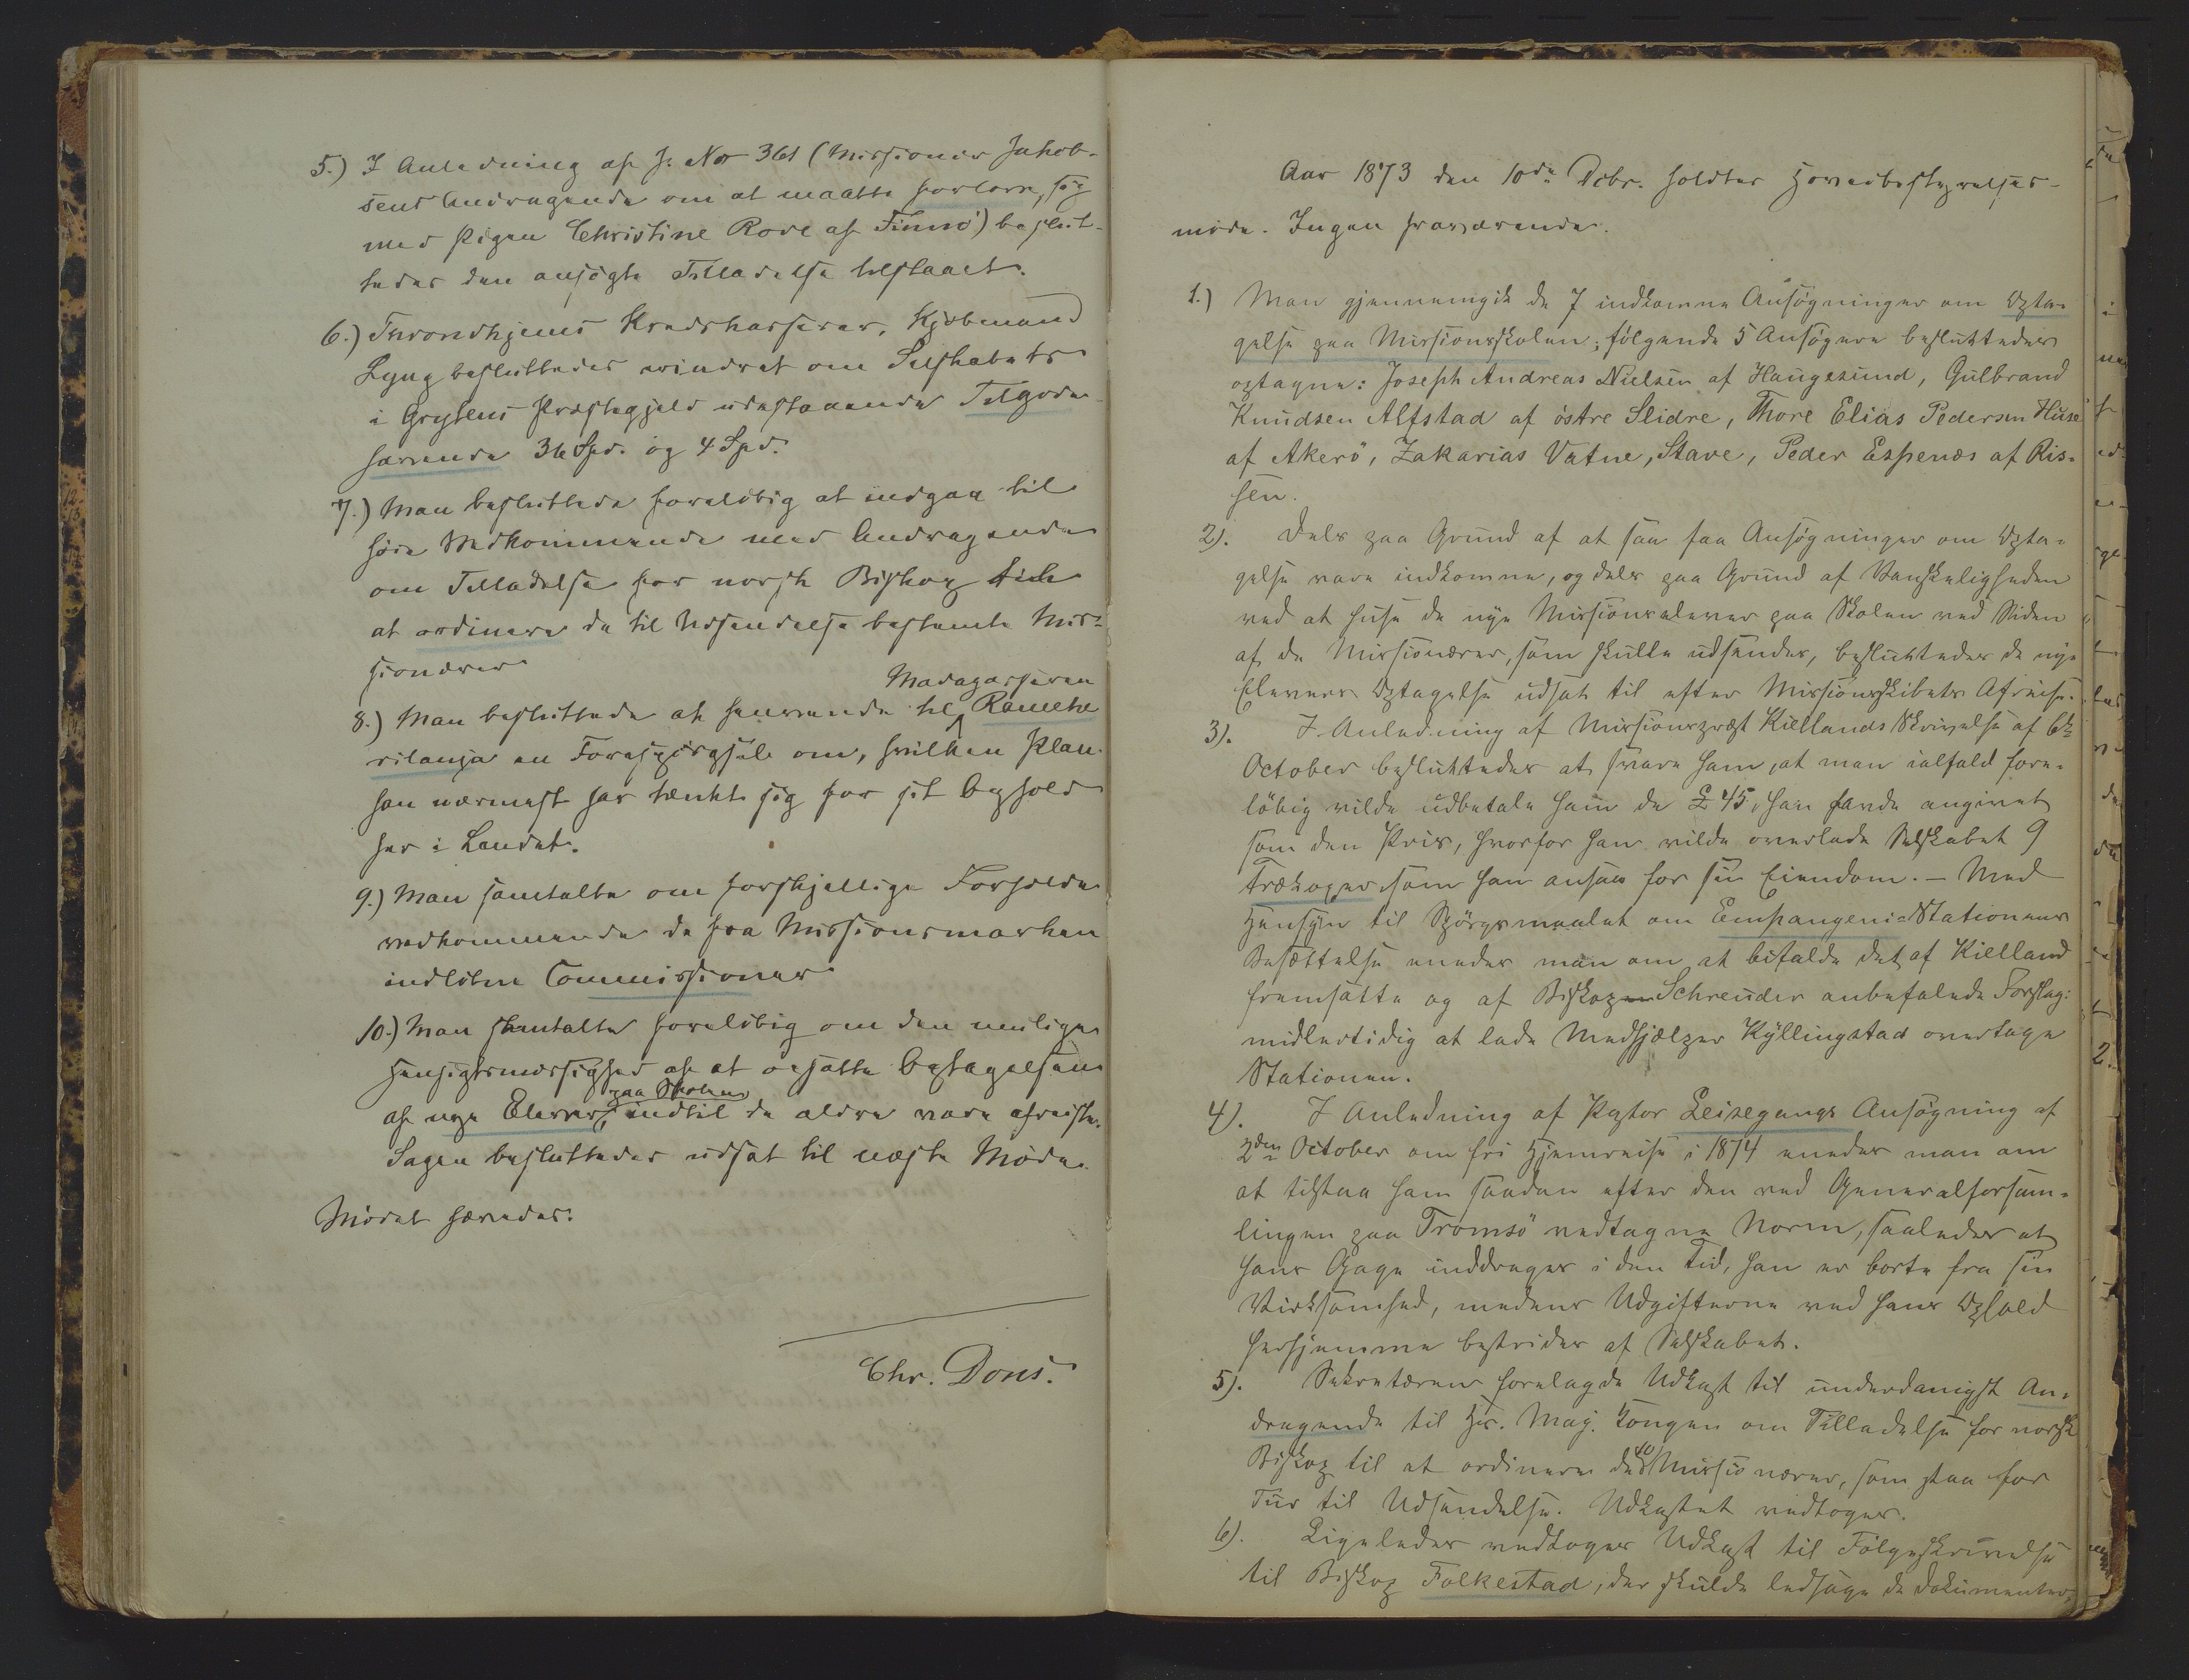 5.) I Anledning af J. No 361 (Missionær Jakob-
sens Andragende om at maatte forlove sig
med Pigen Christine Rove af Finnö) beslut-
tedes den ansøgte Tilladelse tilstaaet.
6.) Throndhjems Kredskasserer, Kjøbmand
Lyng besluttedes tilskrevet om Selskabets
i Grytens Præstegjeld udestaaende Tilgode-
havende 36 Spd. og 4 Spd.
7.) Man besluttede foreløbig at indgaa til
høie Vedkommende med Andragende
om Tilladelse for norsk Biskop til
at ordinere de til Udsendelse bestemte Mis-
sionærer
8.) Man besluttede at henvende til Madagasseren Rauche
rilanja en Forespørgsel om, hvilken Plan
han nærmest har tænkt sig for sit Ophold
her i Landet.
9.) Man samtalte om forskjellige Forholde
vedkommende de fra Missionsmarken
indløbne Commissioner
10.) Man samtalte foreløbig om den mulige
Hensigtsmæssighed af at opsætte Optagelsen
af nye Elever paa Skolen, indtil de ældre vare afreiste.
Sagen besluttedes udsat til næste Møde.
Mødet hævedes.
Chr. Dons.
Aar 1873 den 10de Dcbr. holdtes Hovedbestyrelses-
møde. Ingen fraværende.
1.) Man gjennemgik de 7 indkomne Ansøgninger om Opta-
gelse paa Missionsskolen; følgende 5 Ansøgere besluttedes
optagne: Joseph Andreas Nielsen af Haugesund, Gulbrand
Knudsen Alfstad af östre Slidre, Thore Elias Pedersen Huse
af Akerö, Zakarias Vatne, Stave, Peder Espenæs af Ris-
sen.
2). Dels paa Grund af at saa faa Ansøgninger om Opta-
gelse vare indkomne, og dels paa Grund af Vanskeligheden
ved at huse de nye Missionselever paa Skolen ved Siden
af de Missionærer, som skulle udsendes, besluttedes de nye
Elevers Optagelse udsat til efter Missionsskibets Afreise.
3). I Anledning af Missionspræst Kiellands Skrivelse af 6te
October besluttedes at svare ham, at man ialfald fore-
løbig vilde udbetale ham de £ 45, han havde angivet
som den Pris, hvorfor han vilde overlade Selskabet 9
Trækoxer, som han ansaa for sin Eiendom. – Med
Hensyn til Spörgsmaalet om Empangeni-Stationens
Besættelse enedes man om at bifalde det af Kielland
fremsatte og af Biskop Schreuder anbefalede Forslag:
midlertidig at lade Medhjælper Kyllingstad overtage
Stationen.
4). I Anledning af Pastor Leisegangs Ansøgning af
2den October om fri Hjemreise i 1874 enedes man om
at tilstaa ham saadan efter den ved Generalforsam-
lingen paa Tromsö vedtagne Norm, saaledes at
hans Gage inddrages i den Tid, han er borte fra sin
Virksomhed, medens Udgifterne ved hans Ophold
herhjemme bestrides af Selskabet.
5). Sekretæren forelagde Udkast til underdanigst An-
dragende til Hs. Maj. Kongen om Tilladelse for norsk
Biskop til at ordinere de 10 Missionærer, som staa for
Tur til Udsendelse. Udkastet vedtoges.
6). Ligeledes vedtoges Udkast til Følgeskrivelse
til Biskop Folkestad, der skulde ledsage de Dokumenter,